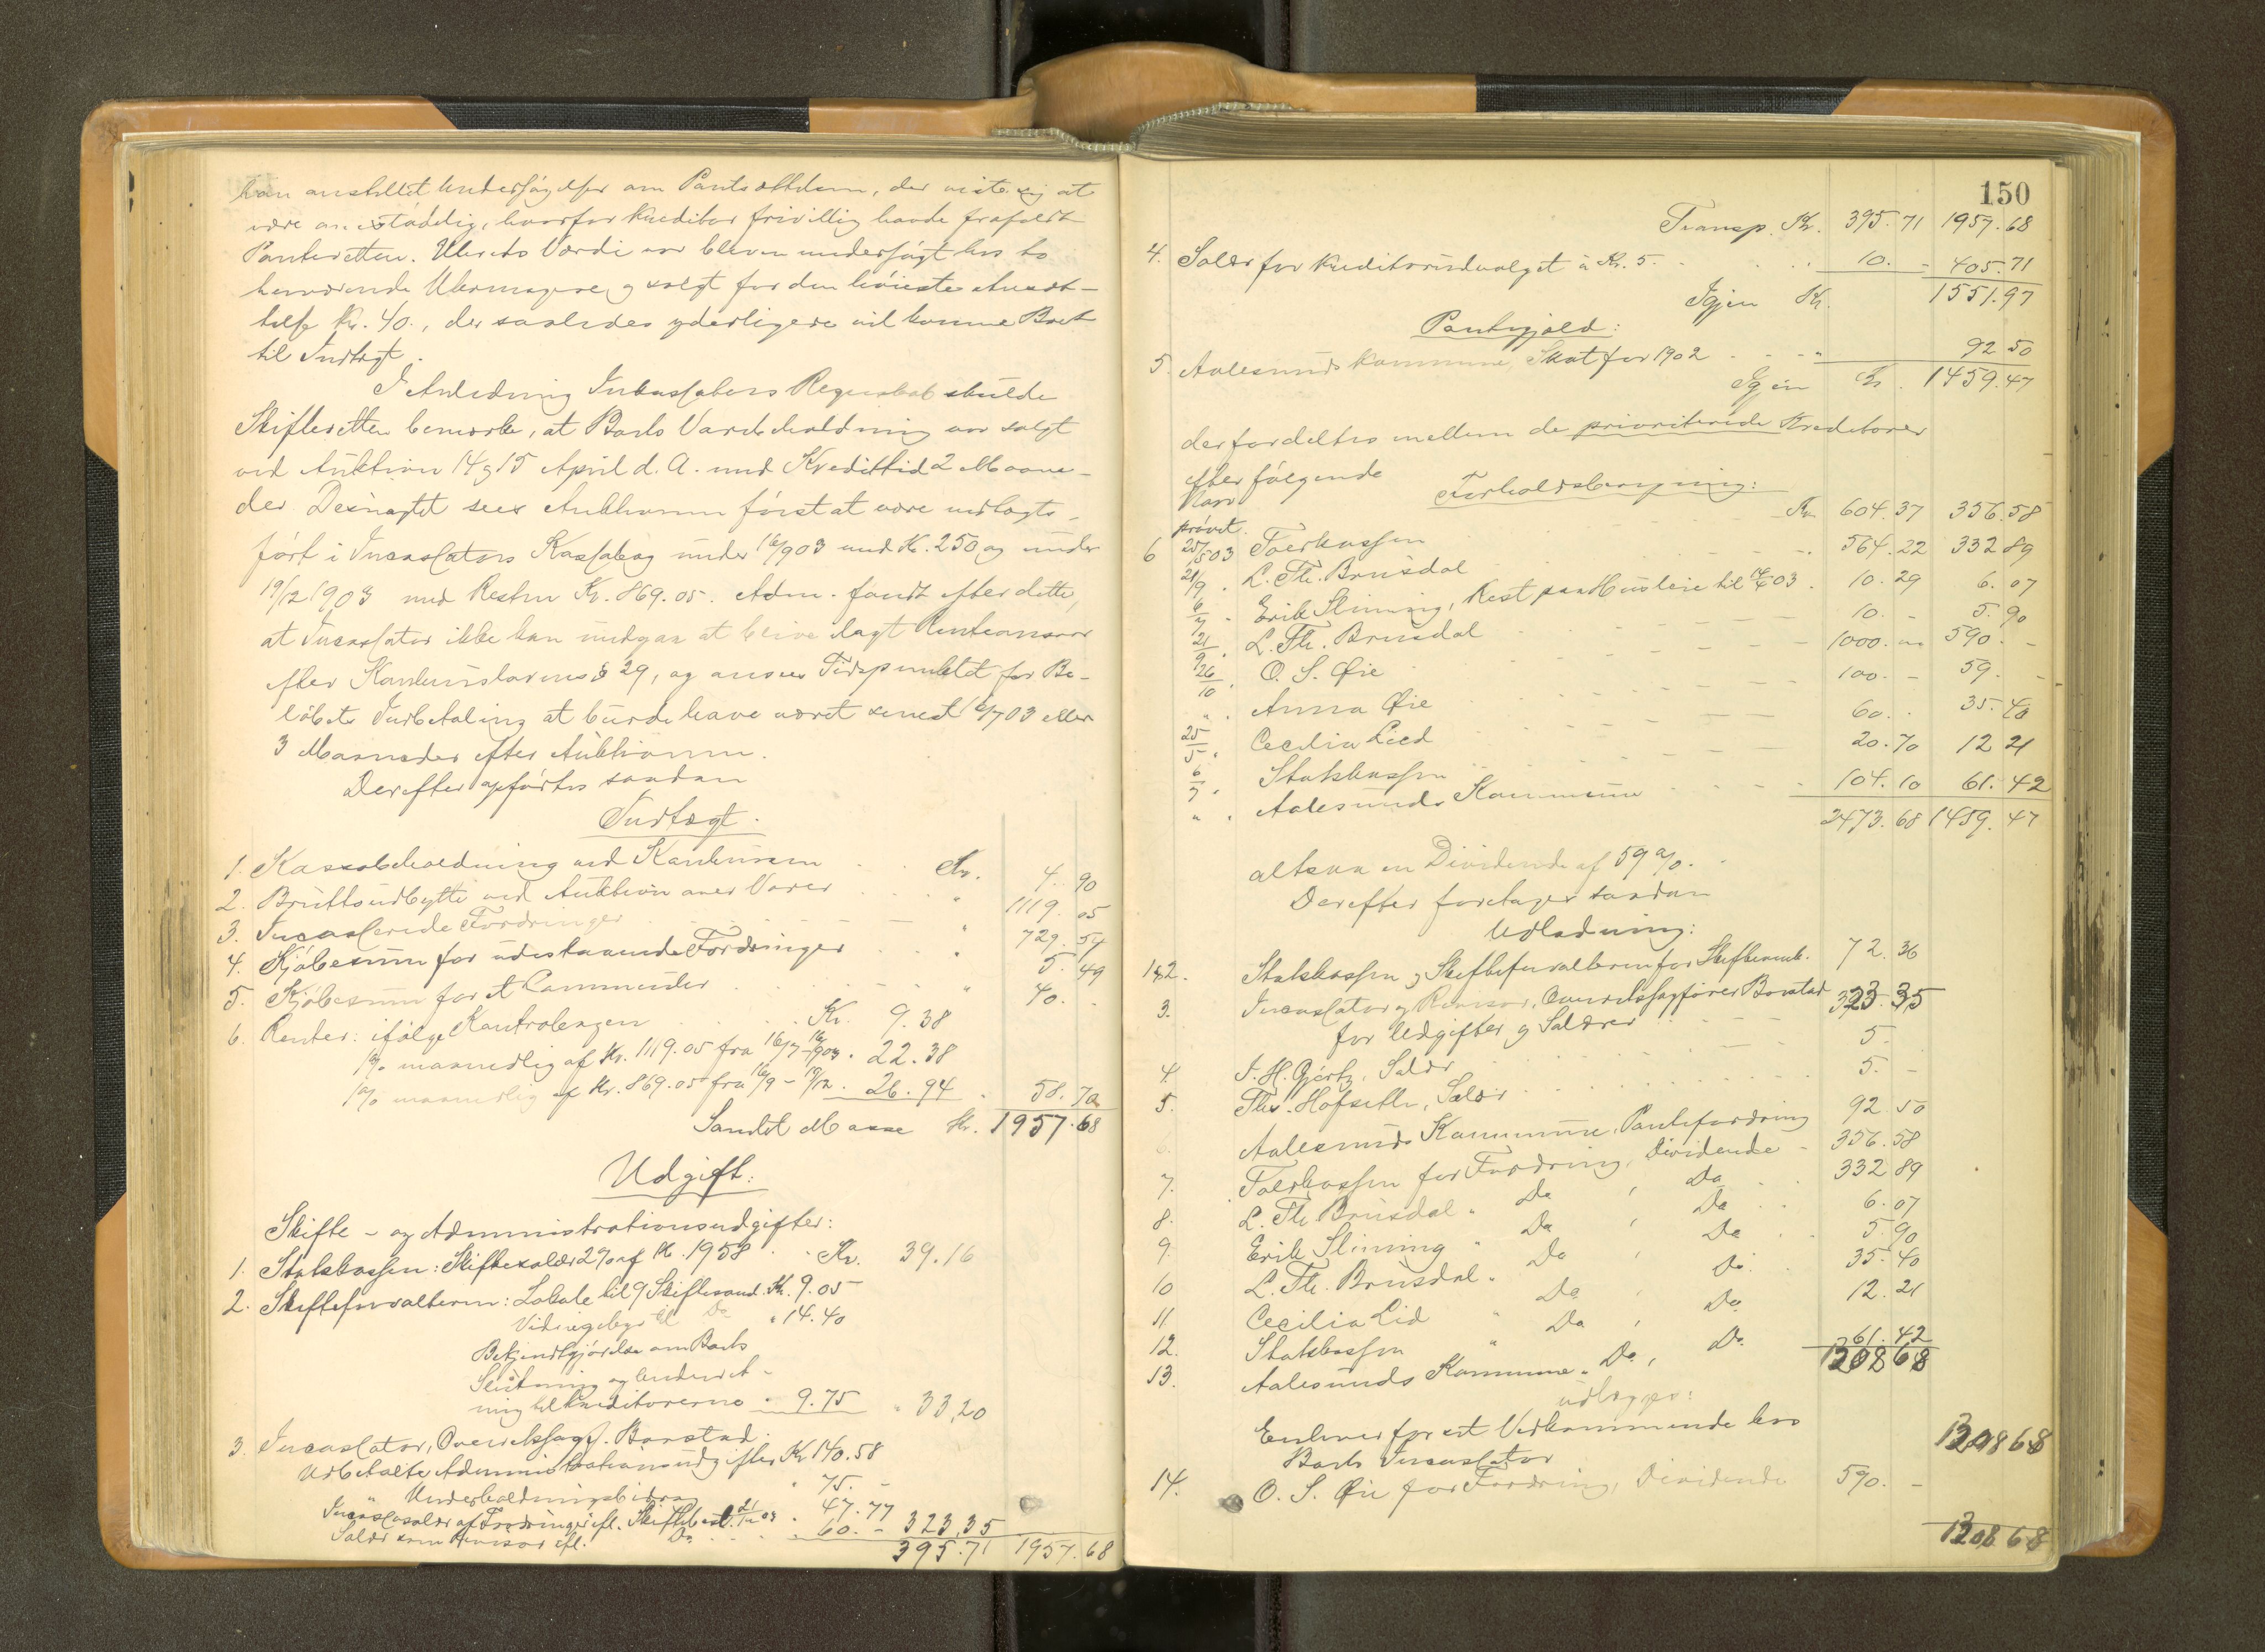 han anstillet Undersøgelser om Pantsættelsen, der viste sig at
være anstødelig, hvorfor Kreditor frivillig havde frafaldt
Panteretten. Uhrets Værdi var bleven undersøgt hos to
herværende Uhrmagere og solgt for den høieste
Kr. 40., der saaledes yderligere vil komme Boet
til Indtægt.
I Anledning Inkassators Regnskab skulde
Skifteretten bemærke, at Boets Varebeholdning var solgt
ved Auktion 14 og 15 April d. A. med Kredittid 2 Maane-
der Desuagtet sees Auktionen først at være indtægts-
ført i Incassators Kassabog under 16/9 03 med Kr. 250 og under
19/12 1903 med Resten Kr. 869.05. Adm. fandt efter dette,
at Incassator ikke kan undgaa at blive ilagt Renteansvar
efter Konkurslovens § 29, og ansees Tidspunktet for Be-
løbets Indbetaling at burde have været senest 16/7 03 eller
3 Maaneder efter Auktionen.
Derefter opførtes saadan
Indtægt.
1. Kassabeholdning ved Konkursen Kr. 4. 90
2. Bruttoudbytte ved Auktion over Varer " 1119. 05
3. Incasserede Fordringer " 729. 54
4. Kjøbesum for udestaaende Fordringer " 5. 49
5. Kjøbesum for et Lommeuhr " 40. -
6. Renter: ifølge Kontrabogen Kr. 9.38
1% maanedlig af Kr. 1119.05 fra 16/7 - 16/9 03 . 22.38
1% maanedlig af Kr. 869.05 fra 16/9 - 19/12 . 26.94 " 58. 70
Samlet Masse Kr. 1957.68
Udgift:
Skifte- og Administrationsudgifter:
1. Statskassen: Skiftesalær 2% af Kr. 1958 Kr. 39.16
2. Skifteforvalteren: Lokale til 9 Skiftesaml. Kr. 9.05
Vidnegebyr til Do " 14.40
Bekjendtgjørelse om Boets
Slutning og Underret-
ning til Kreditorerne " 9.75 " 33,20
3. Incassator, Overretssagf. Borstad.
Udbetalte Administrationsudgifter Kr 140.58
Underholdningsbidrag " 75. -
Incassosalær af Fordringer ifl. Skiftebesl. 21/10 03 " 47.77
Salær som Revisor ifl. Do " 60. - 323,35
395.71 1957.68
150
Transp. Kr. 395.71 1957.68
4. Salær for Kreditorudvalget à Kr. 5. 10. - 405.71
Igjen Kr. 1551.97
Pantegjæld:
5. Aalesunds Kommune, Skat for 1902 92 50
Igjen Kr. 1459.47
der fordeltes mellem de prioriterede Kreditorer
efter følgende
Naar
prøvet. Forholdsberegning:
6 25/5 03 Toldkassen Kr. 604.37 356.58
21/9 . L. Th. Brusdal 564.22 332 89
6/7 . Erik Slinning, Rest paa Husleie til 14/4 03 . 10.29 6.07
21/9 . L. Th. Brusdal 10. - 5.90
26/10 . O. S. Øie 1000. - 590. -
" . Anna Øie 100. - 59. -
25/5 . Cecilia Lied 60. - 35.40
6/7 . Statskassen 20.70 12 21
" . Aalesunds Kommune 104.10 61.42
2473.68 1459.47
altsaa en Dividende af 59%.
Derefter foretages saadan
Udlodning:
1&2. Statskassen og Skifteforvalteren for Skifteomk. 72.36
3. Incassator og Revisor, Overretssagfører Borstad
for Udgifter og Salærer 323.35
4. J. H. Gjørtz, Salær 5. -
5. Ths. Hofseth, Salær 5. -
6. Aalesunds Kommune, Pantefordring 92.50
7. Toldkassen for Fordring, Dividende 356.58
8. L. Th. Brusdal " Do , Do 332 89
9. Erik Slinning " Do , Do 6.07
10 L. Th. Brusdal " Do , Do 5.90
11 Cecilia Lid " Do , Do 35.40
12. Statskassen " Do , Do 12.21
13. Aalesunds Kommune " Do , Do 61.42
1308 68
udlægges:
Enhver for sit Vedkommende hos
Boets Incassator 1308 68
14. O. S. Øie for Fordring, Dividende 590. -
1308 68